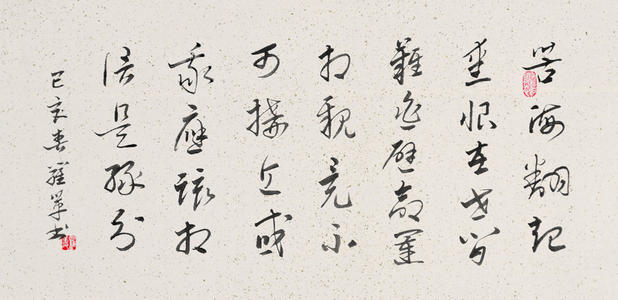 苦海翻起
愛恨在世间
難逃避命運
相親竟不
可接近或
我應該相
信是緣分
己亥春書